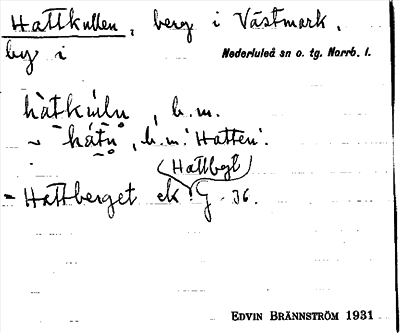 Hattkullen, berg i Västmark,
by i Nederluleå sn o. tg. Norrb. l.
hàtkúln, b.m.
~ hátn, b.m. 'Hatten'.
(Hattbgt)
= Hattberget ek G. 36.
EDVIN BRÄNNSTRÖM 1931